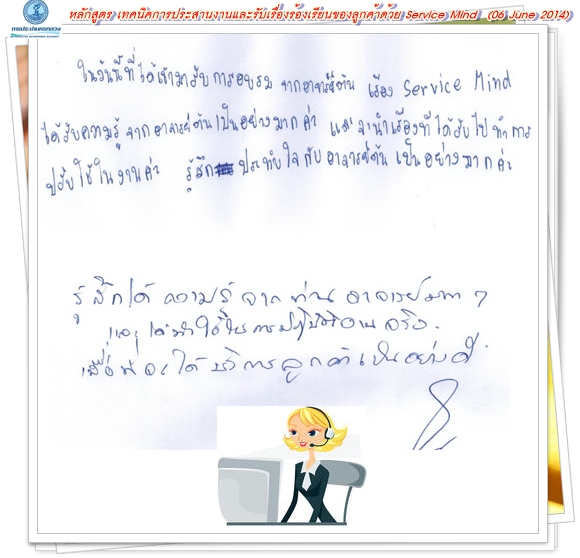 หลักสูตร เทคนิคการประสานงานและรับเรื่องร้องเรียนของลูกค้าด้วย Service Mind (06 June 2014)
การประปานครหลวง
ในวันนี้ที่ได้เข้ามารับการอบรม จากอาจารย์ต้น เรื่อง Service Mind
ได้รับความรู้จากอาจารย์ต้นเป็นอย่างมากค่ะ และจะนำเรื่องที่ได้รับไปทำการ
ปรับใช้ในงานค่ะ รู้สึก ประทับใจกับอาจารย์ต้นเป็นอย่างมากค่ะ
รู้สึกได้ความรู้จากท่านอาจารย์มาก ๆ
และได้นำใช้ในการปฏิบัติงานจริง
เพื่อที่จะได้บริการลูกค้าเป็นอย่างดี